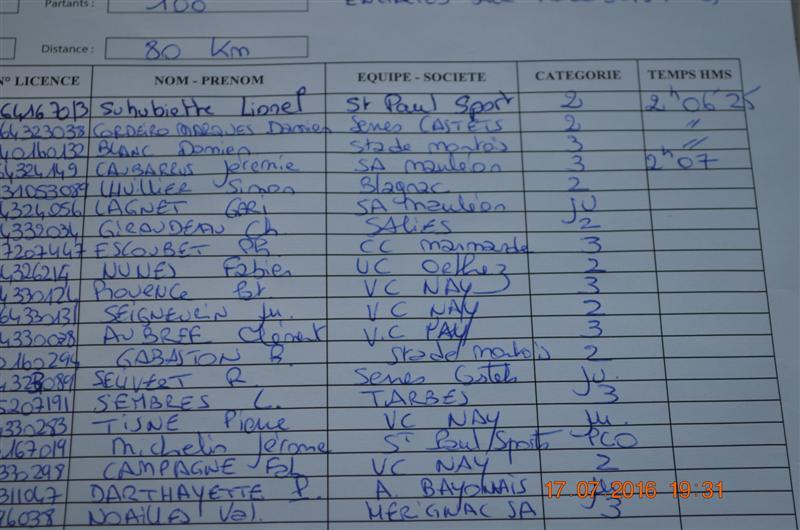 Partants : 100
Distance : 80 Km
N° LICENCE NOM - PRENOM EQUIPE - SOCIETE CATEGORIE TEMPS HMS
64167013 Suhubiette Lionel St Paul Sport 2 2h06'25
64323038 CORDEIRO MARQUES Damien Senes CASTETS 2 "
40160132 BLANC Damien Stade montois 3 "
4324149 CAUBARRUS Jeremie SA mauléon 3 2h07
31053089 LHUILLIER Simon Blagnac 2
4324056 LAGNET GARI SA mauléon Ju
4332034 GIRAUDEAU Ch. SALIES 2
7207447 ESCOUBET Ph. CC marmande 3
4326214 NUNES Fabien UC Orthez 2
4330124 PROVENCE VC NAY 3
64330131 SEIGNEURIN Ju. VC NAY 2
4330028 AUBREE Clément V.C PAY 3
0160294 GABASTON B. Stade montois 2
089 SEUVERT R. Senes Castets Ju.
5207191 SEMBRES L. TARBES 3
4330283 TISNE Pierre VC NAY Ju.
167019 Michelin Jérome St Paul Sports PCO
330298 CAMPAGNE VC NAY 2
311047 DARTHAYETTE P. A. BAYONNAIS Ju
96038 NOAILLES Val. MERIGNAC SA 3
17 07 2016 19:31